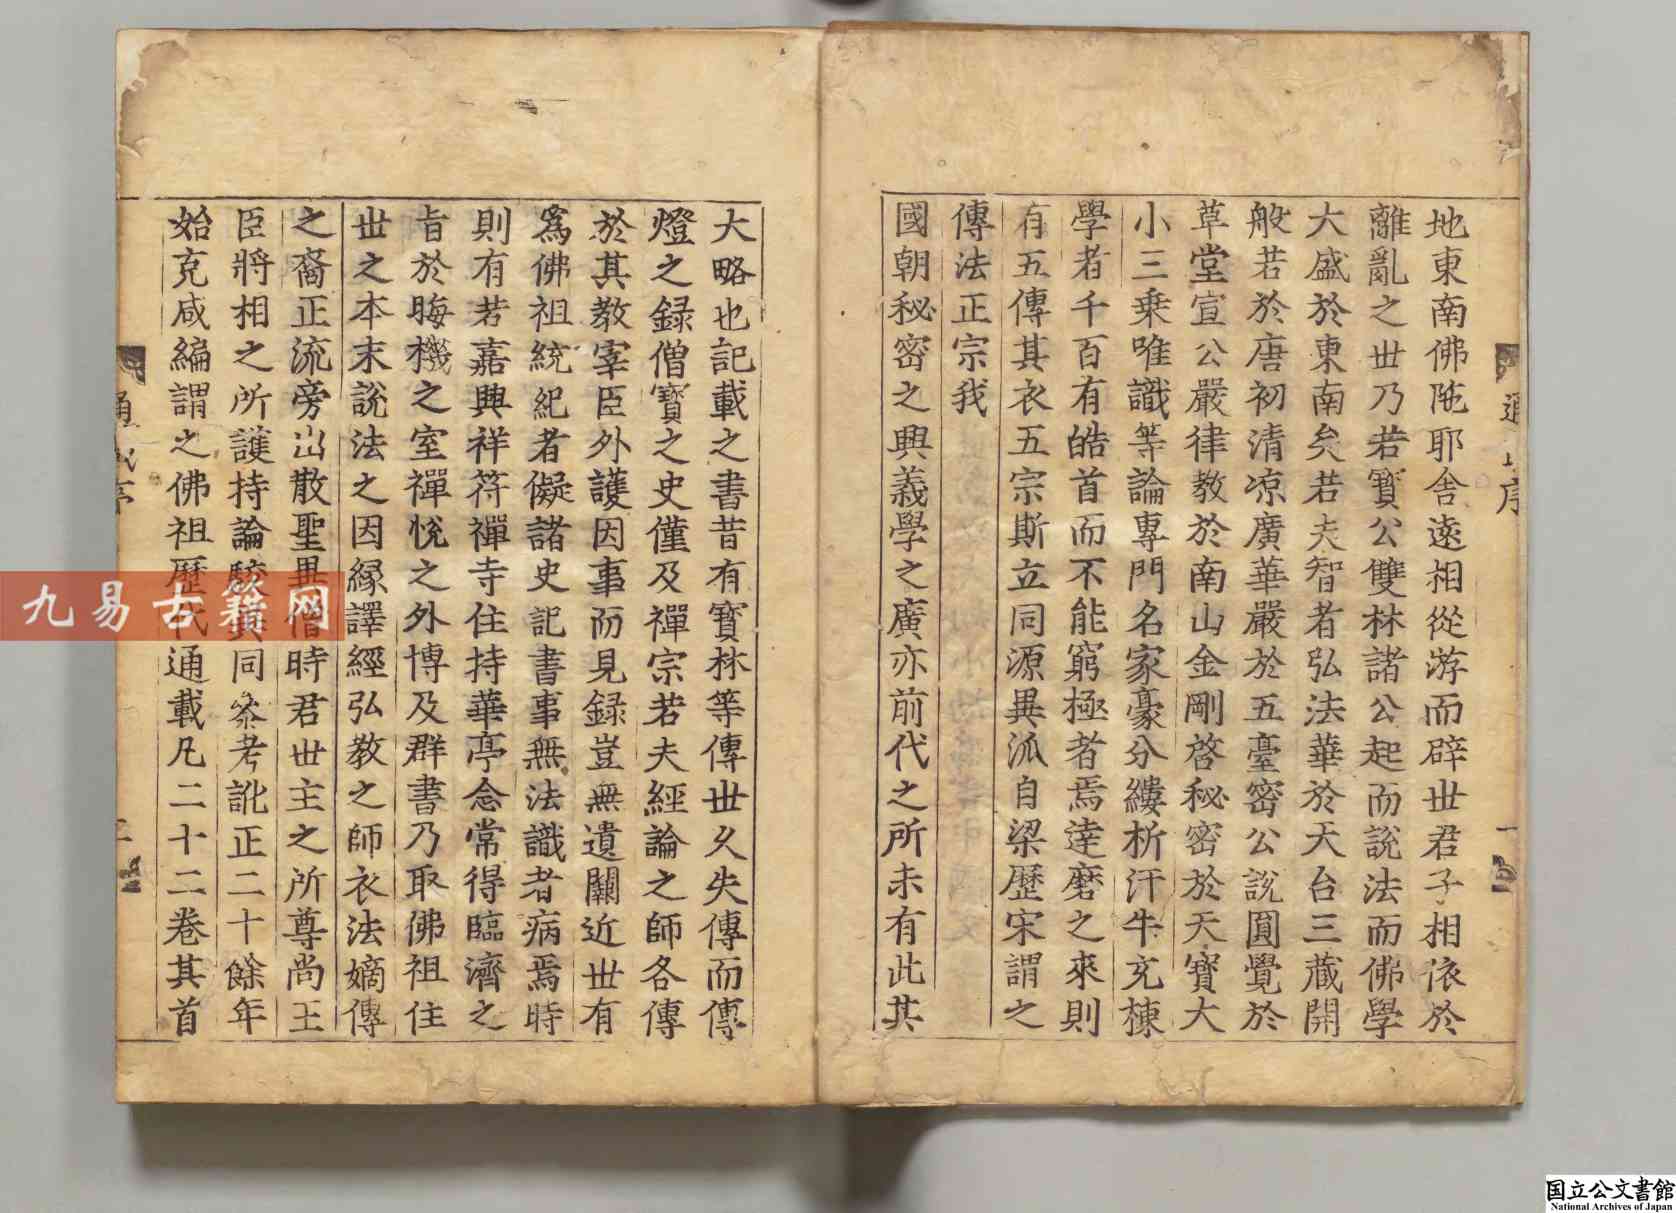 地東南佛陁耶舍遠相從游而辟世君子相依於
離亂之世乃若寶公雙林諸公起而說法而佛學
大盛於東南矣若夫智者弘法華於天台三藏開
般若於唐初清凉廣華嚴於五臺密公說圓覺於
草堂宣公嚴律教於南山金剛啓秘密於天寶大
小三乗唯識等論專門名家豪分縷析汗牛充棟
學者千百有皓首而不能窮極者焉達磨之來則
有五傳其衣五宗斯立同源異派自梁歷宋謂之
傳法正宗我
國朝秘密之興義學之廣亦前代之所未有此其
大略也記載之書昔有寶林等傳世久失傳而傳
燈之録僧寶之史僅及禪宗若夫經論之師各傳
於其教宰臣外護因事而見録豈無遺闕近世有
爲佛祖統紀者儗諸史記書事無法識者病焉時
則有若嘉興祥符禪寺住持華亭念常得臨濟之
旨於晦機之室禪悅之外博及群書乃取佛祖住
世之本末說法之因緣譯經弘教之師衣法嫡傳
之裔正流旁出散聖異僧時君世主之所尊尚王
臣將相之所護持論駁異同叅考訛正二十餘年
始克成編謂之佛祖歷代通載凡二十二卷其首
序
九易古籍网
国立公文書館
National Archives of Japan